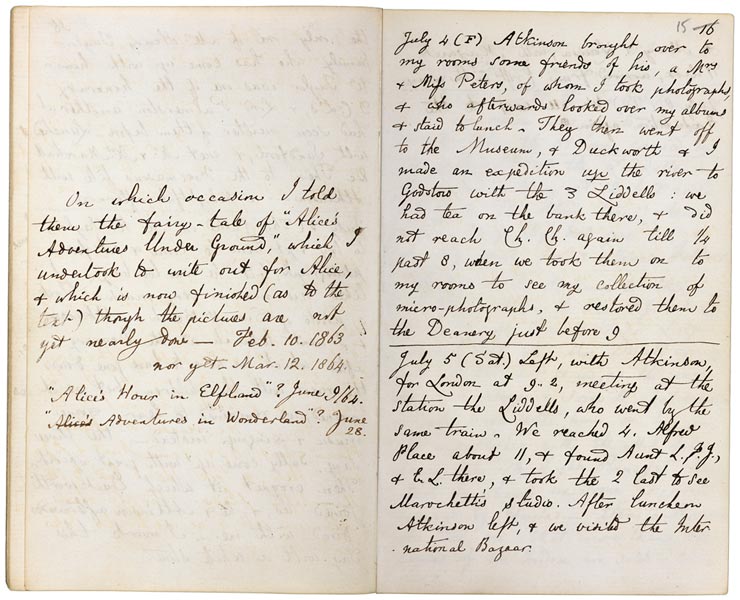 On which occasion I told
them the fairy-tale of "Alice's
Adventures Under Ground," which I
undertook to write out for Alice,
& which is now finished (as to the
text) though the pictures are not
yet nearly done — Feb. 10. 1863
nor yet — Mar. 12. 1864.
"Alice's Hour in Elfland"? June 9/64.
"Alice's Adventures in Wonderland"? June
28.
15 16
July 4 (F) Atkinson brought over to
my rooms some friends of his, a Mrs
& Miss Peters, of whom I took photographs,
& who afterwards looked over my albums
& staid to lunch. They then went off
to the Museum, & Duckworth & I
made an expedition up the river to
Godstow with the 3 Liddells: we
had tea on the bank there, & did
not reach Ch. Ch. again till 1/4
past 8, when we took them on to
my rooms to see my collection of
micro-photographs, & restored them to
the Deanery, just before 9
July 5 (Sat.) Left, with Atkinson,
for London at 9.2, meeting at the
station the Liddells, who went by the
same train. We reached 4. Alfred
Place about 11, & found Aunt L.,
& E. L. there, & took the 2 last to see
Marochetti's studio. After luncheon
Atkinson left, & we visited the Inter
national Bazaar.